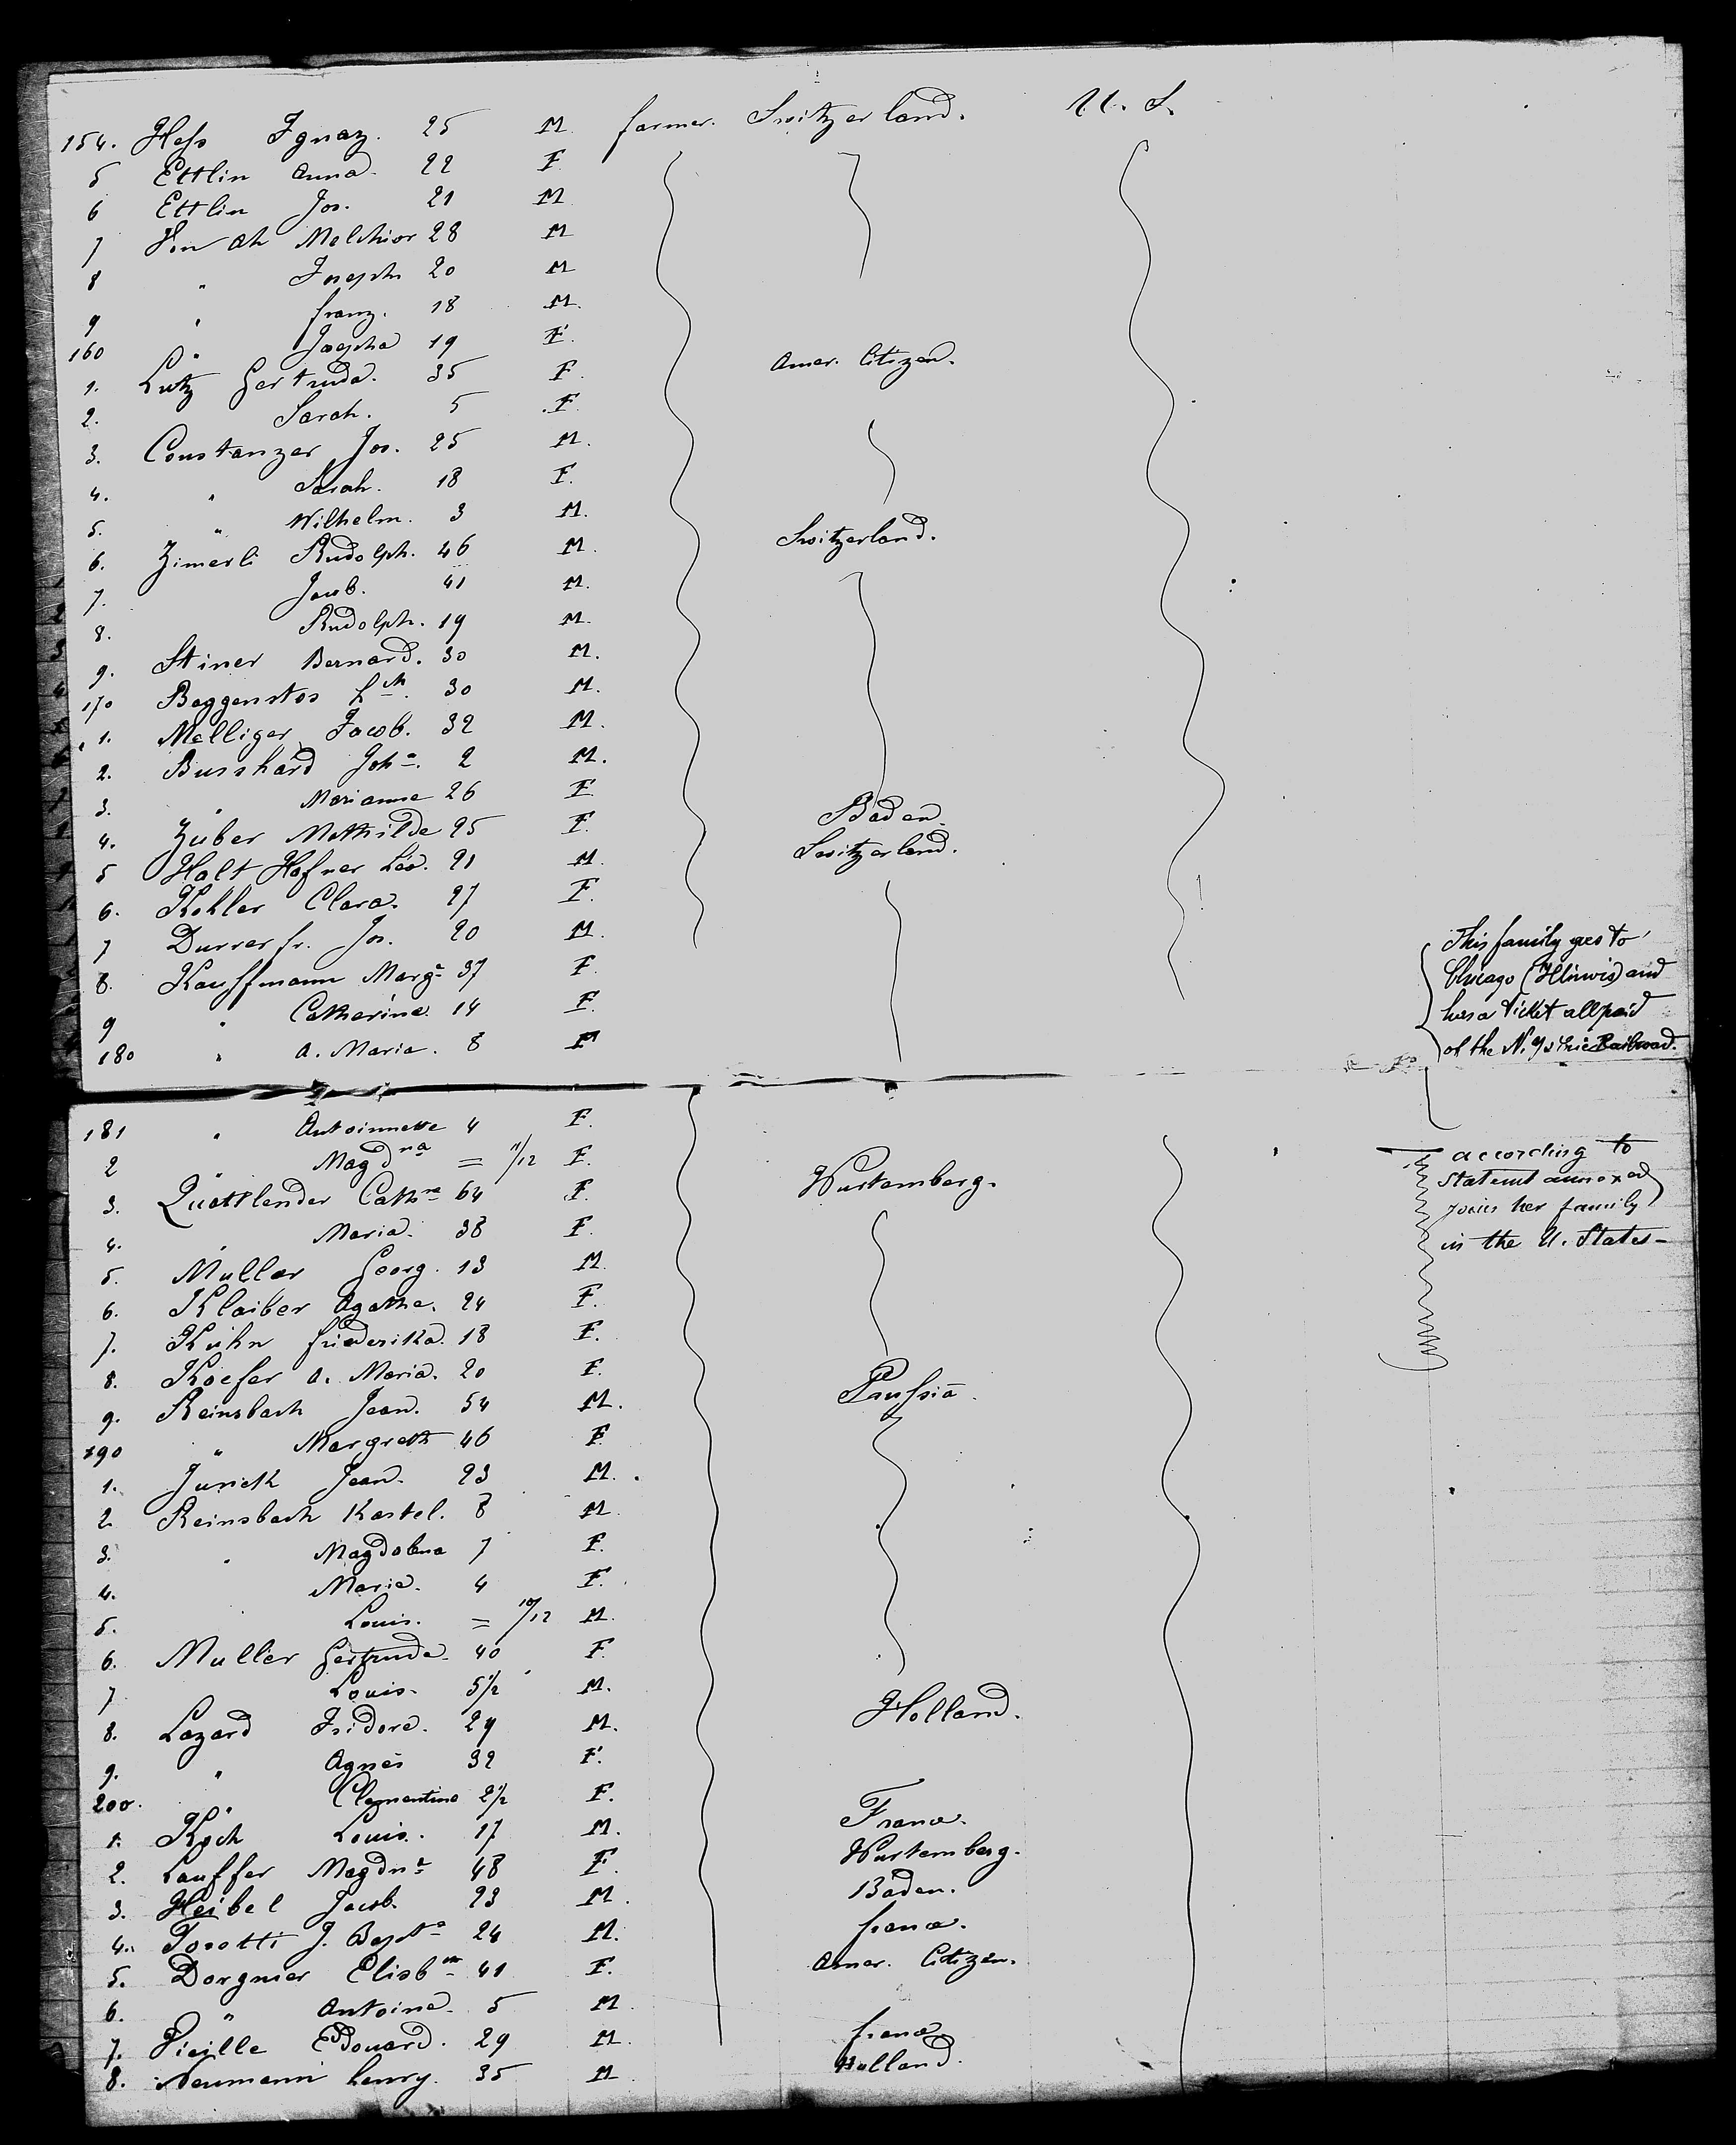 154. Hess Ignaz. 25 M farmer. Switzerland. U. S.
5 Ettlin Anna. 22 F
6 Ettlin Jos. 21 M
7 Melchior 28 M
8 " Joseph 20 M
9 " franz. 18 M.
160 " Josepha 19 F.
1. Lutz Gertruda. 35 F. Amer. Citizen.
2. Sarah. 5 F.
3. Constanzer Jos. 25 M.
4. " Sarah. 18 F.
5. " Wilhelm. 3 M.
6. Zimerli Rudolph. 46 M. Switzerland.
7. Jacob. 41 M.
8. Rudolph. 19 M.
9. Stiner Bernard. 30 M.
170 Beggenstos 30 M.
1. Melliger Jacob. 32 M.
2. Busshard Joha. 2 M.
3. " Marianna 26 F
4. Zuber Mathilde 25 F. Baden.
5 Halt Hafner Léo. 21 M. Switzerland.
6. Kohler Clara. 27 F.
7 Durrer fr. Jos. 20 M.
8. Kauffmann Marga 37 F.
9 " Catherine. 14 F.
180 " A. Maria. 8 F
This family goes to
Chicago (Illinois) and
has a Ticket all paid
of the N. Y & Erie Railroad.
181 " Antoinnette 4 F.
2 " Magdna = 11/12 F.
3. Quattlender Cathne 64 F. Wurtemberg.
4. " Maria. 38 F.
5. Muller Georg. 13 M.
6. Klaiber Agatha. 24 F.
7. Kuhn friederika. 18 F.
8. Koefer A. Maria. 20 F.
9. Reinsbach Jean. 54 M. Prussia.
190 " Margreth 46 F.
1. Junick Jean. 23 M.
2 Reinsbach Kastel. 8 M
3. " Magdalena 7 F.
4. Maria. 4 F.
5. Louis. = 10/12 M.
6. Muller Gertruda. 40 F.
7 Louis. 5 1/2 M.
8. Lazard Isidore. 29 M. Holland.
9. " Agnes 32 F.
200. " Clementine 2 1/2 F.
1. Koch Louis. 17 M. France.
2. Lauffer Magdna 48 F. Wurtemberg.
3. Heibel Jacob. 23 M. Baden.
4. Torotti J. Bapta 24 M. france.
5. Dorgnier Elisbth 41 F. Amer. Citizen.
6. " Antoine. 5 M
7. Vieille Edouard. 29 M. france
8. Neumann henry. 35 M Holland.
according to
Statemt annexed
joins her family
in the U. States-